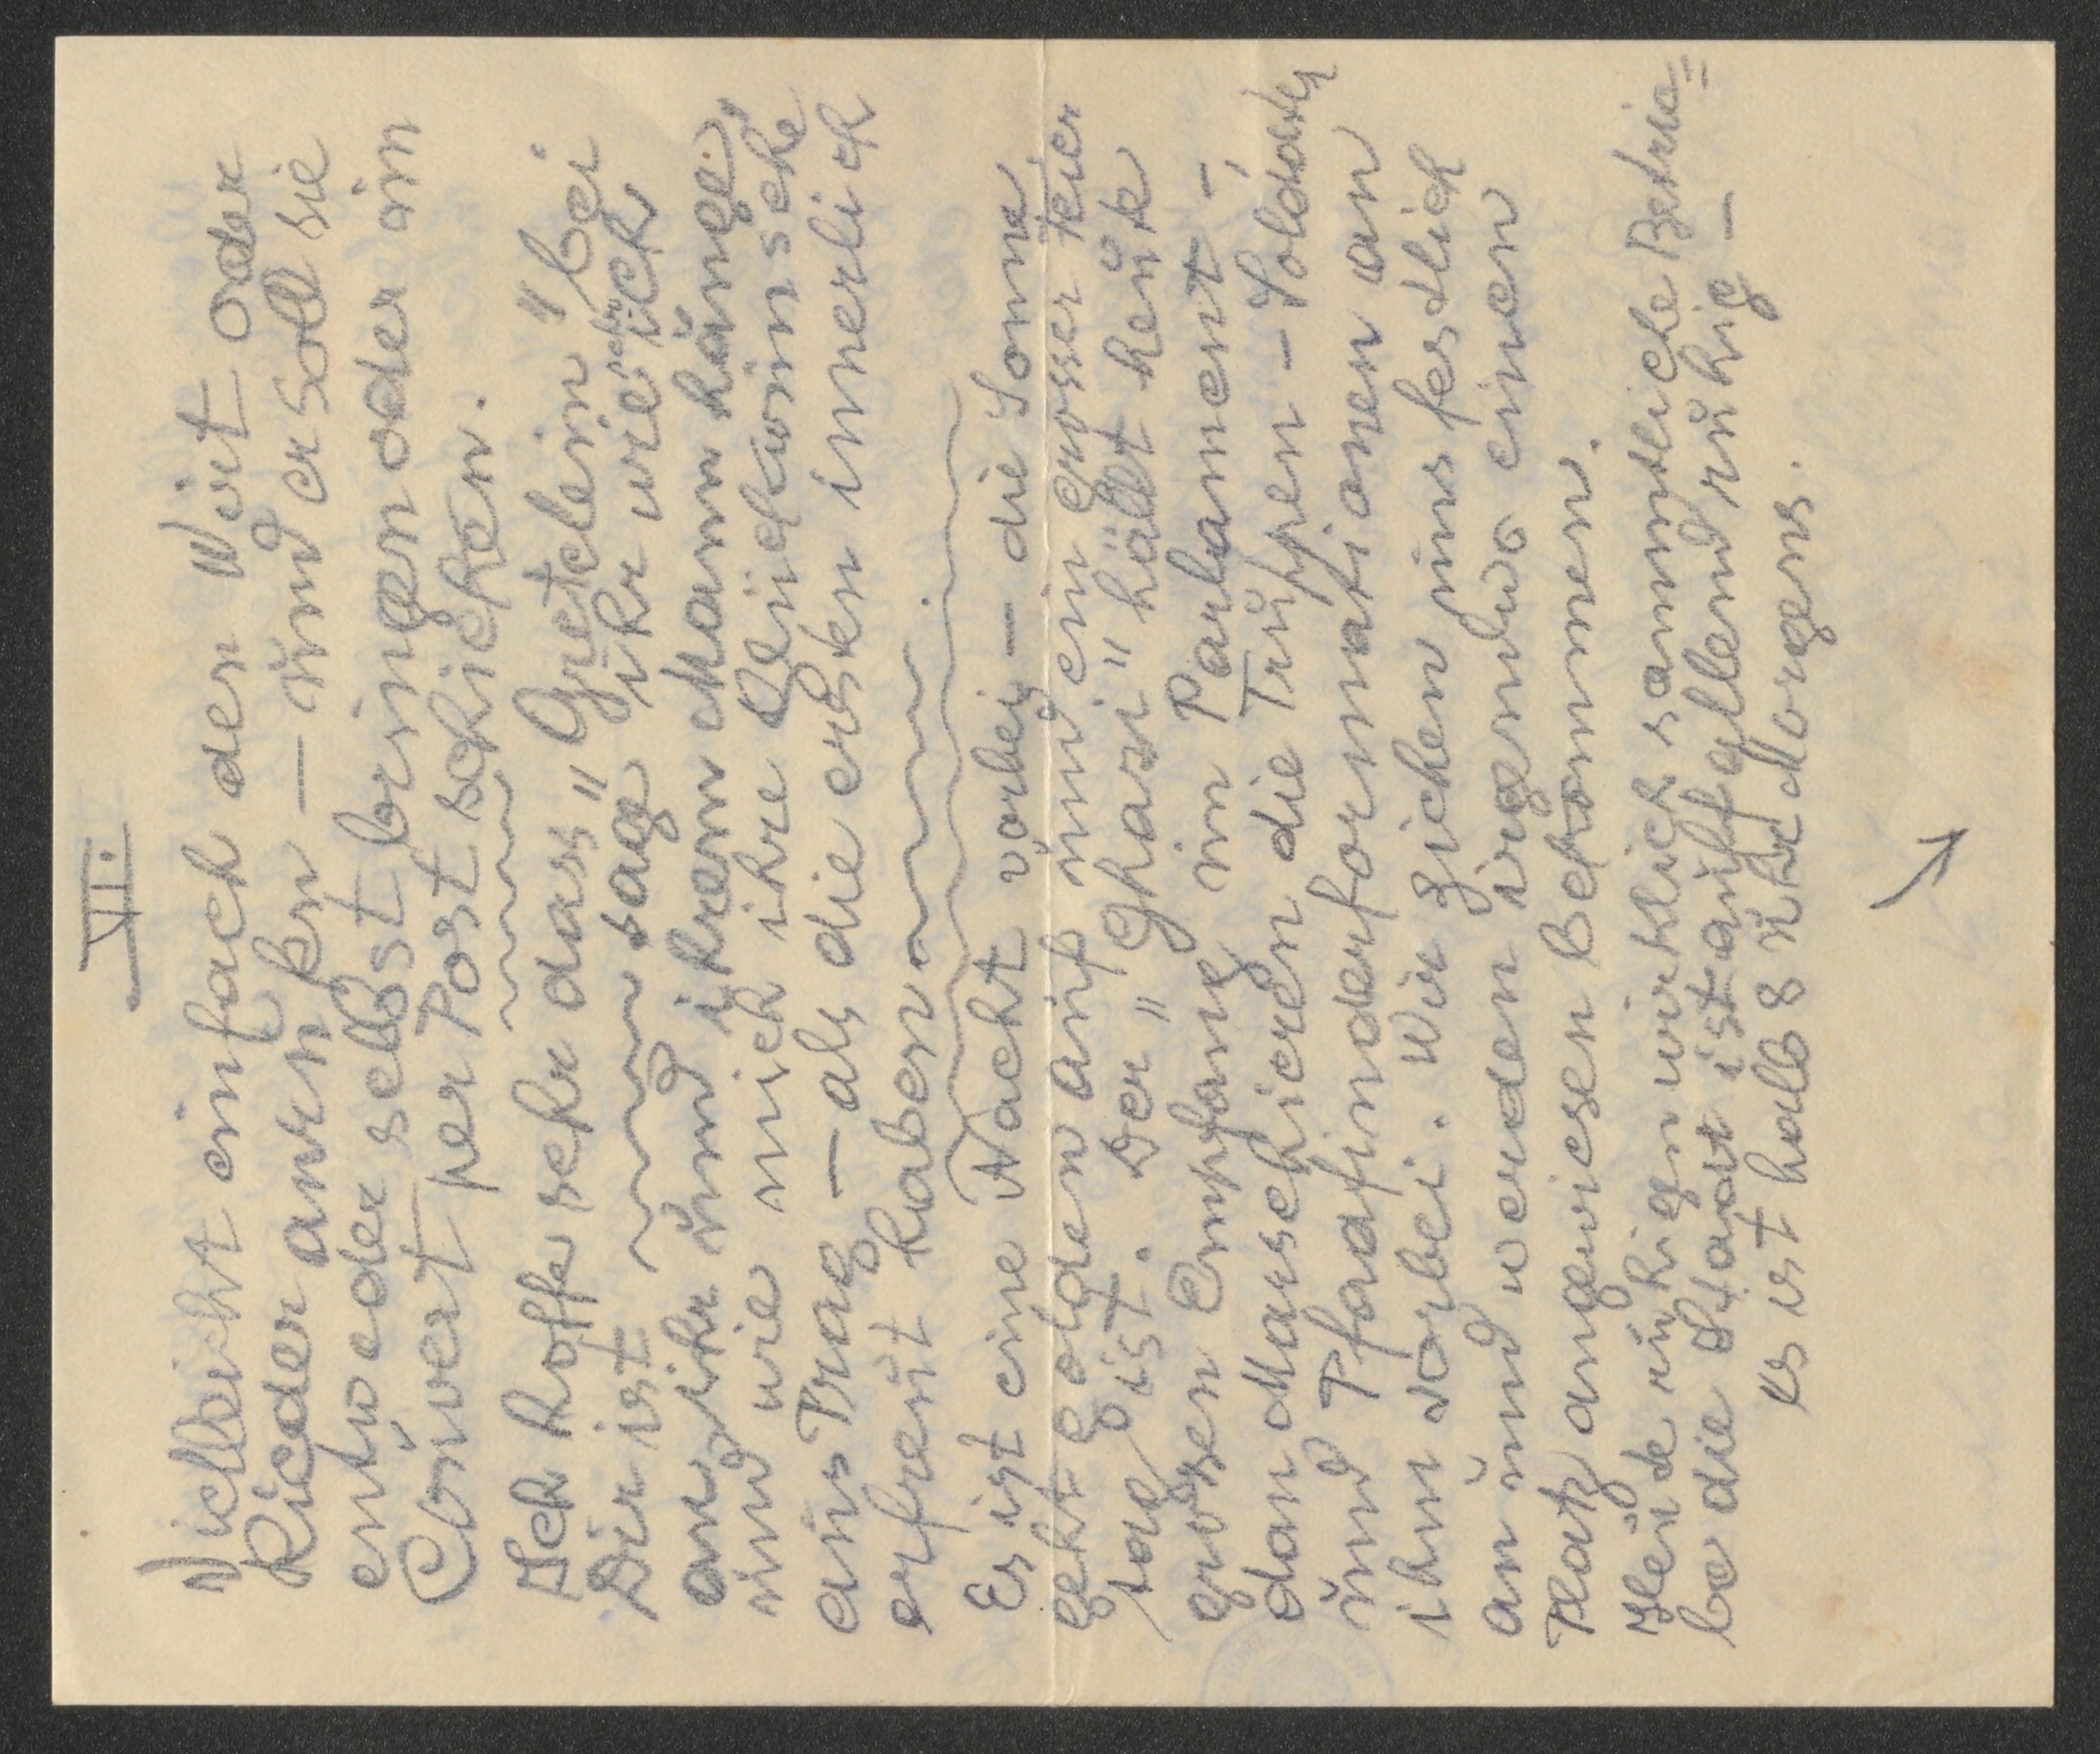 VII.
Vielleicht einfach den Wirt oder
Rieder anrufen — und er soll sie
entweder selbst bringen oder im
Couvert per Post schicken.
Ich hoffe sehr dass „Gretelein" bei
Dir ist sage ihr wie sehr ich
an ihr und ihrem Mann hänge,
und wie mich ihre Glückwünsche
aus Prag — als die ersten innerlich
erfreut haben
Es ist eine Nacht vorbei — die Sonne
geht golden auf und ein grosser Feier
tag ist. Der „Ghasi" hällt heute
grossen Empfang im Parlament —
dan Marschieren die Truppen — Soldaten
und Pfadfinderformationen an
ihm vorbei. Wir ziehen uns festlich
an und werden irgendwo einen
Platz angewiesen bekommen.
Heute ruhigen wirklich sammtliche Betrie=
be die Stadt ist auffallend ruhig —
es ist halb 8 Uhr Morgens.